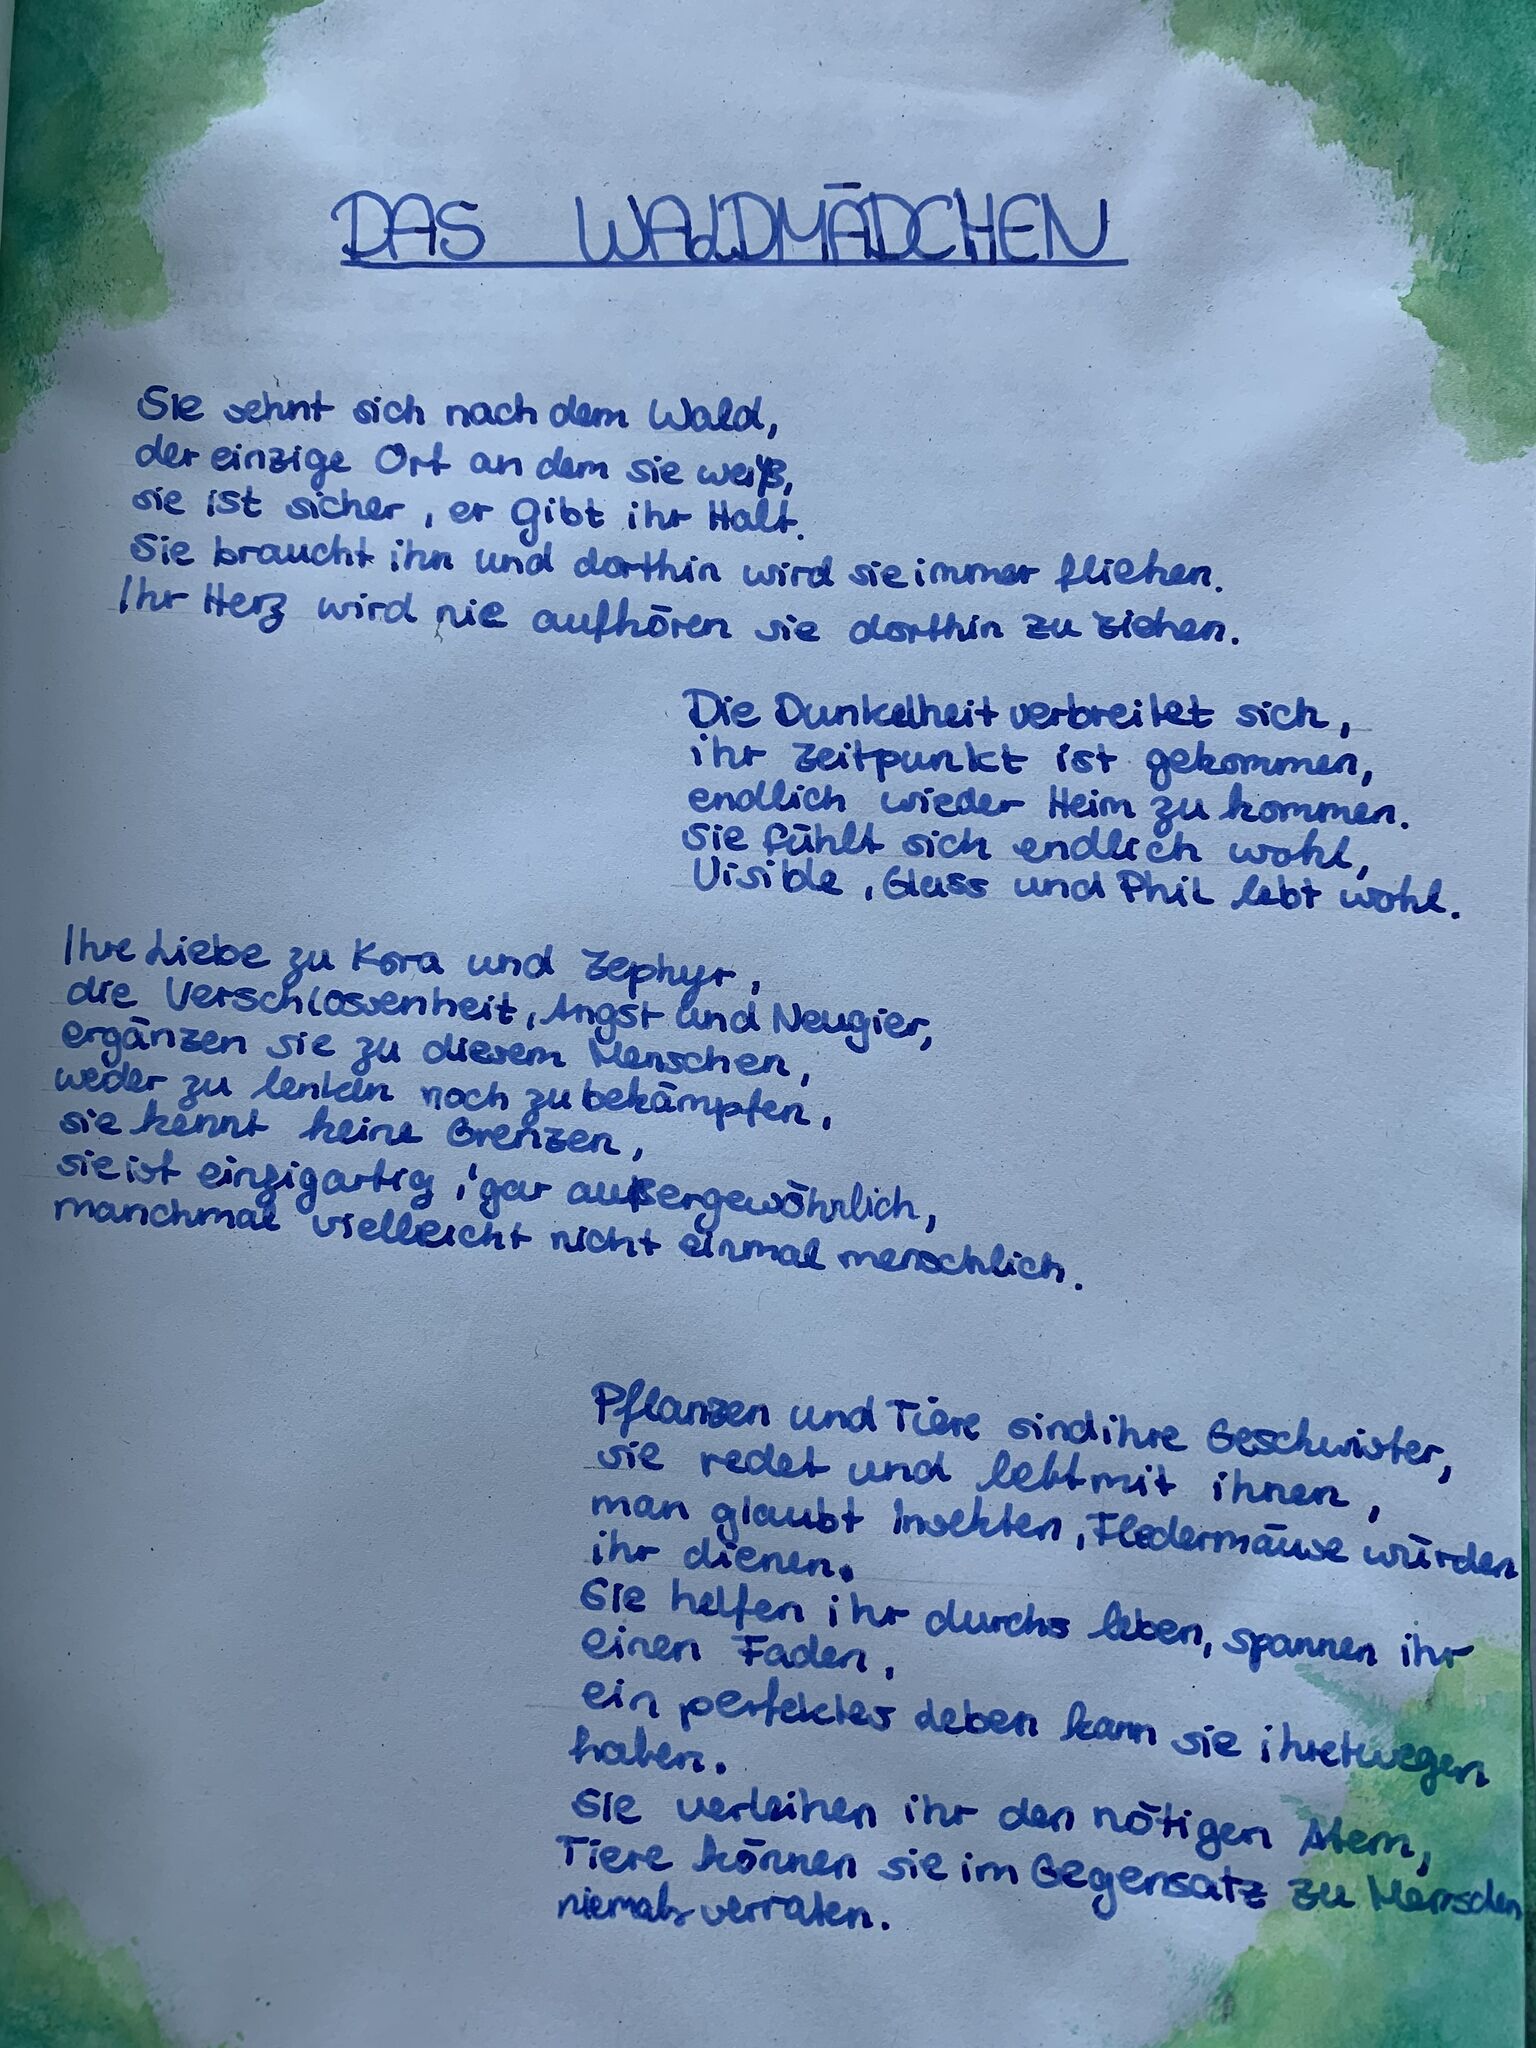 DAS WALDMÄDCHEN
Sie sehnt sich nach dem Wald,
der einzige Ort an dem sie weiß,
sie ist sicher, er gibt ihr Halt.
Sie braucht ihn und dorthin wird sie immer fliehen.
Ihr Herz wird nie aufhören sie dorthin zu ziehen.
Die Dunkelheit verbreitet sich,
ihr Zeitpunkt ist gekommen,
endlich wieder Heim zu kommen.
Sie fühlt sich endlich wohl,
Visible, Glass und Phil lebt wohl.
Ihre Liebe zu Kora und Zephyr,
die Verschlossenheit, Angst und Neugier,
ergänzen sie zu diesem Menschen,
weder zu lenken noch zu bekämpfen,
sie kennt keine Grenzen,
sie ist einzigartig, gar außergewöhnlich,
manchmal vielleicht nicht einmal menschlich.
Pflanzen und Tiere sind ihre Geschwister,
sie redet und lebt mit ihnen,
man glaubt Insekten, Fledermäuse würden
ihr dienen.
Sie helfen ihr durchs leben, spannen ihr
einen Faden,
ein perfektes Leben kann sie ihretwegen
haben.
Sie verleihen ihr den nötigen Atem,
Tiere können sie im Gegensatz zu Menschen
niemals verraten.